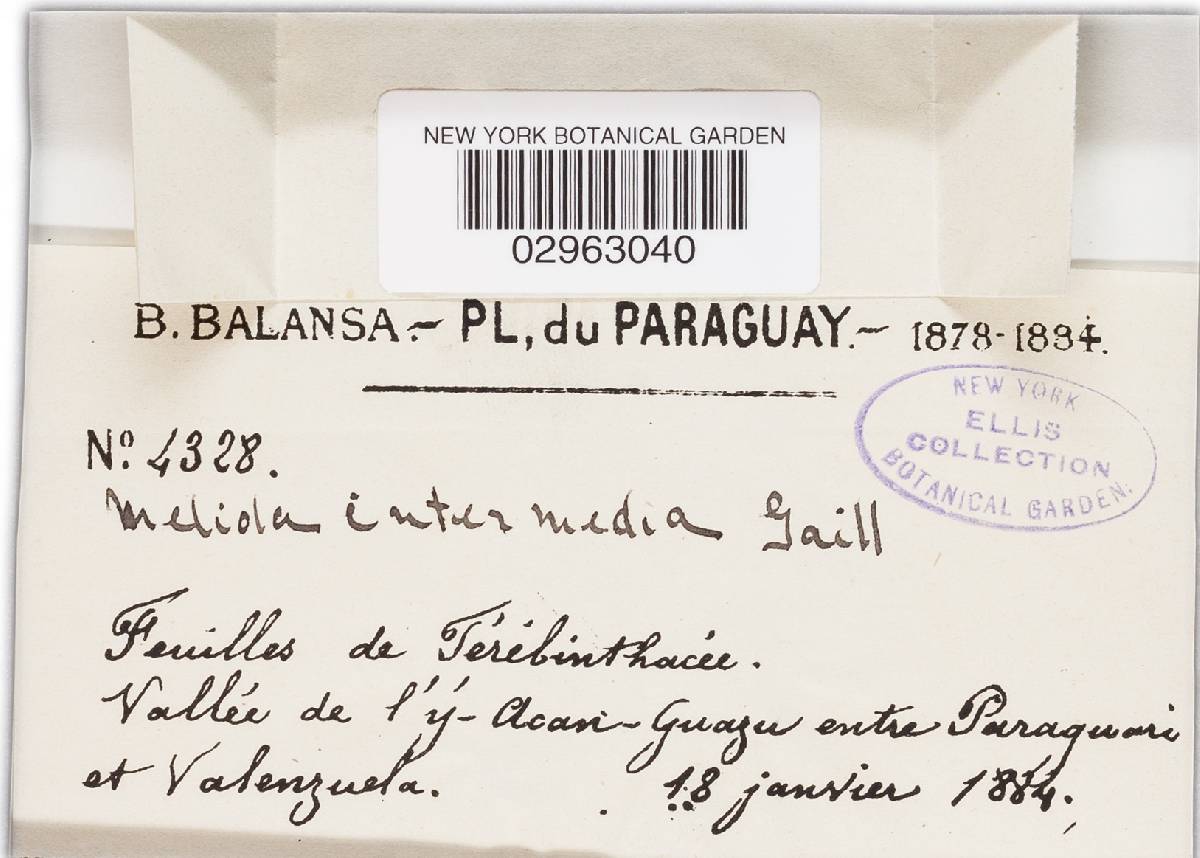 NEW YORK BOTANICAL GARDEN
02963040
B. BALANSA.– PL, du PARAGUAY.– 1878-1884.
NEW YORK
ELLIS
COLLECTION
BOTANICAL GARDEN.
Nº. 4328.
Meliola intermedia Gaill
Feuilles de Térébinthacée.
Vallée de l'ý-Acan-Guazu entre Paraguari
et Valenzuela. 18 janvier 1884.